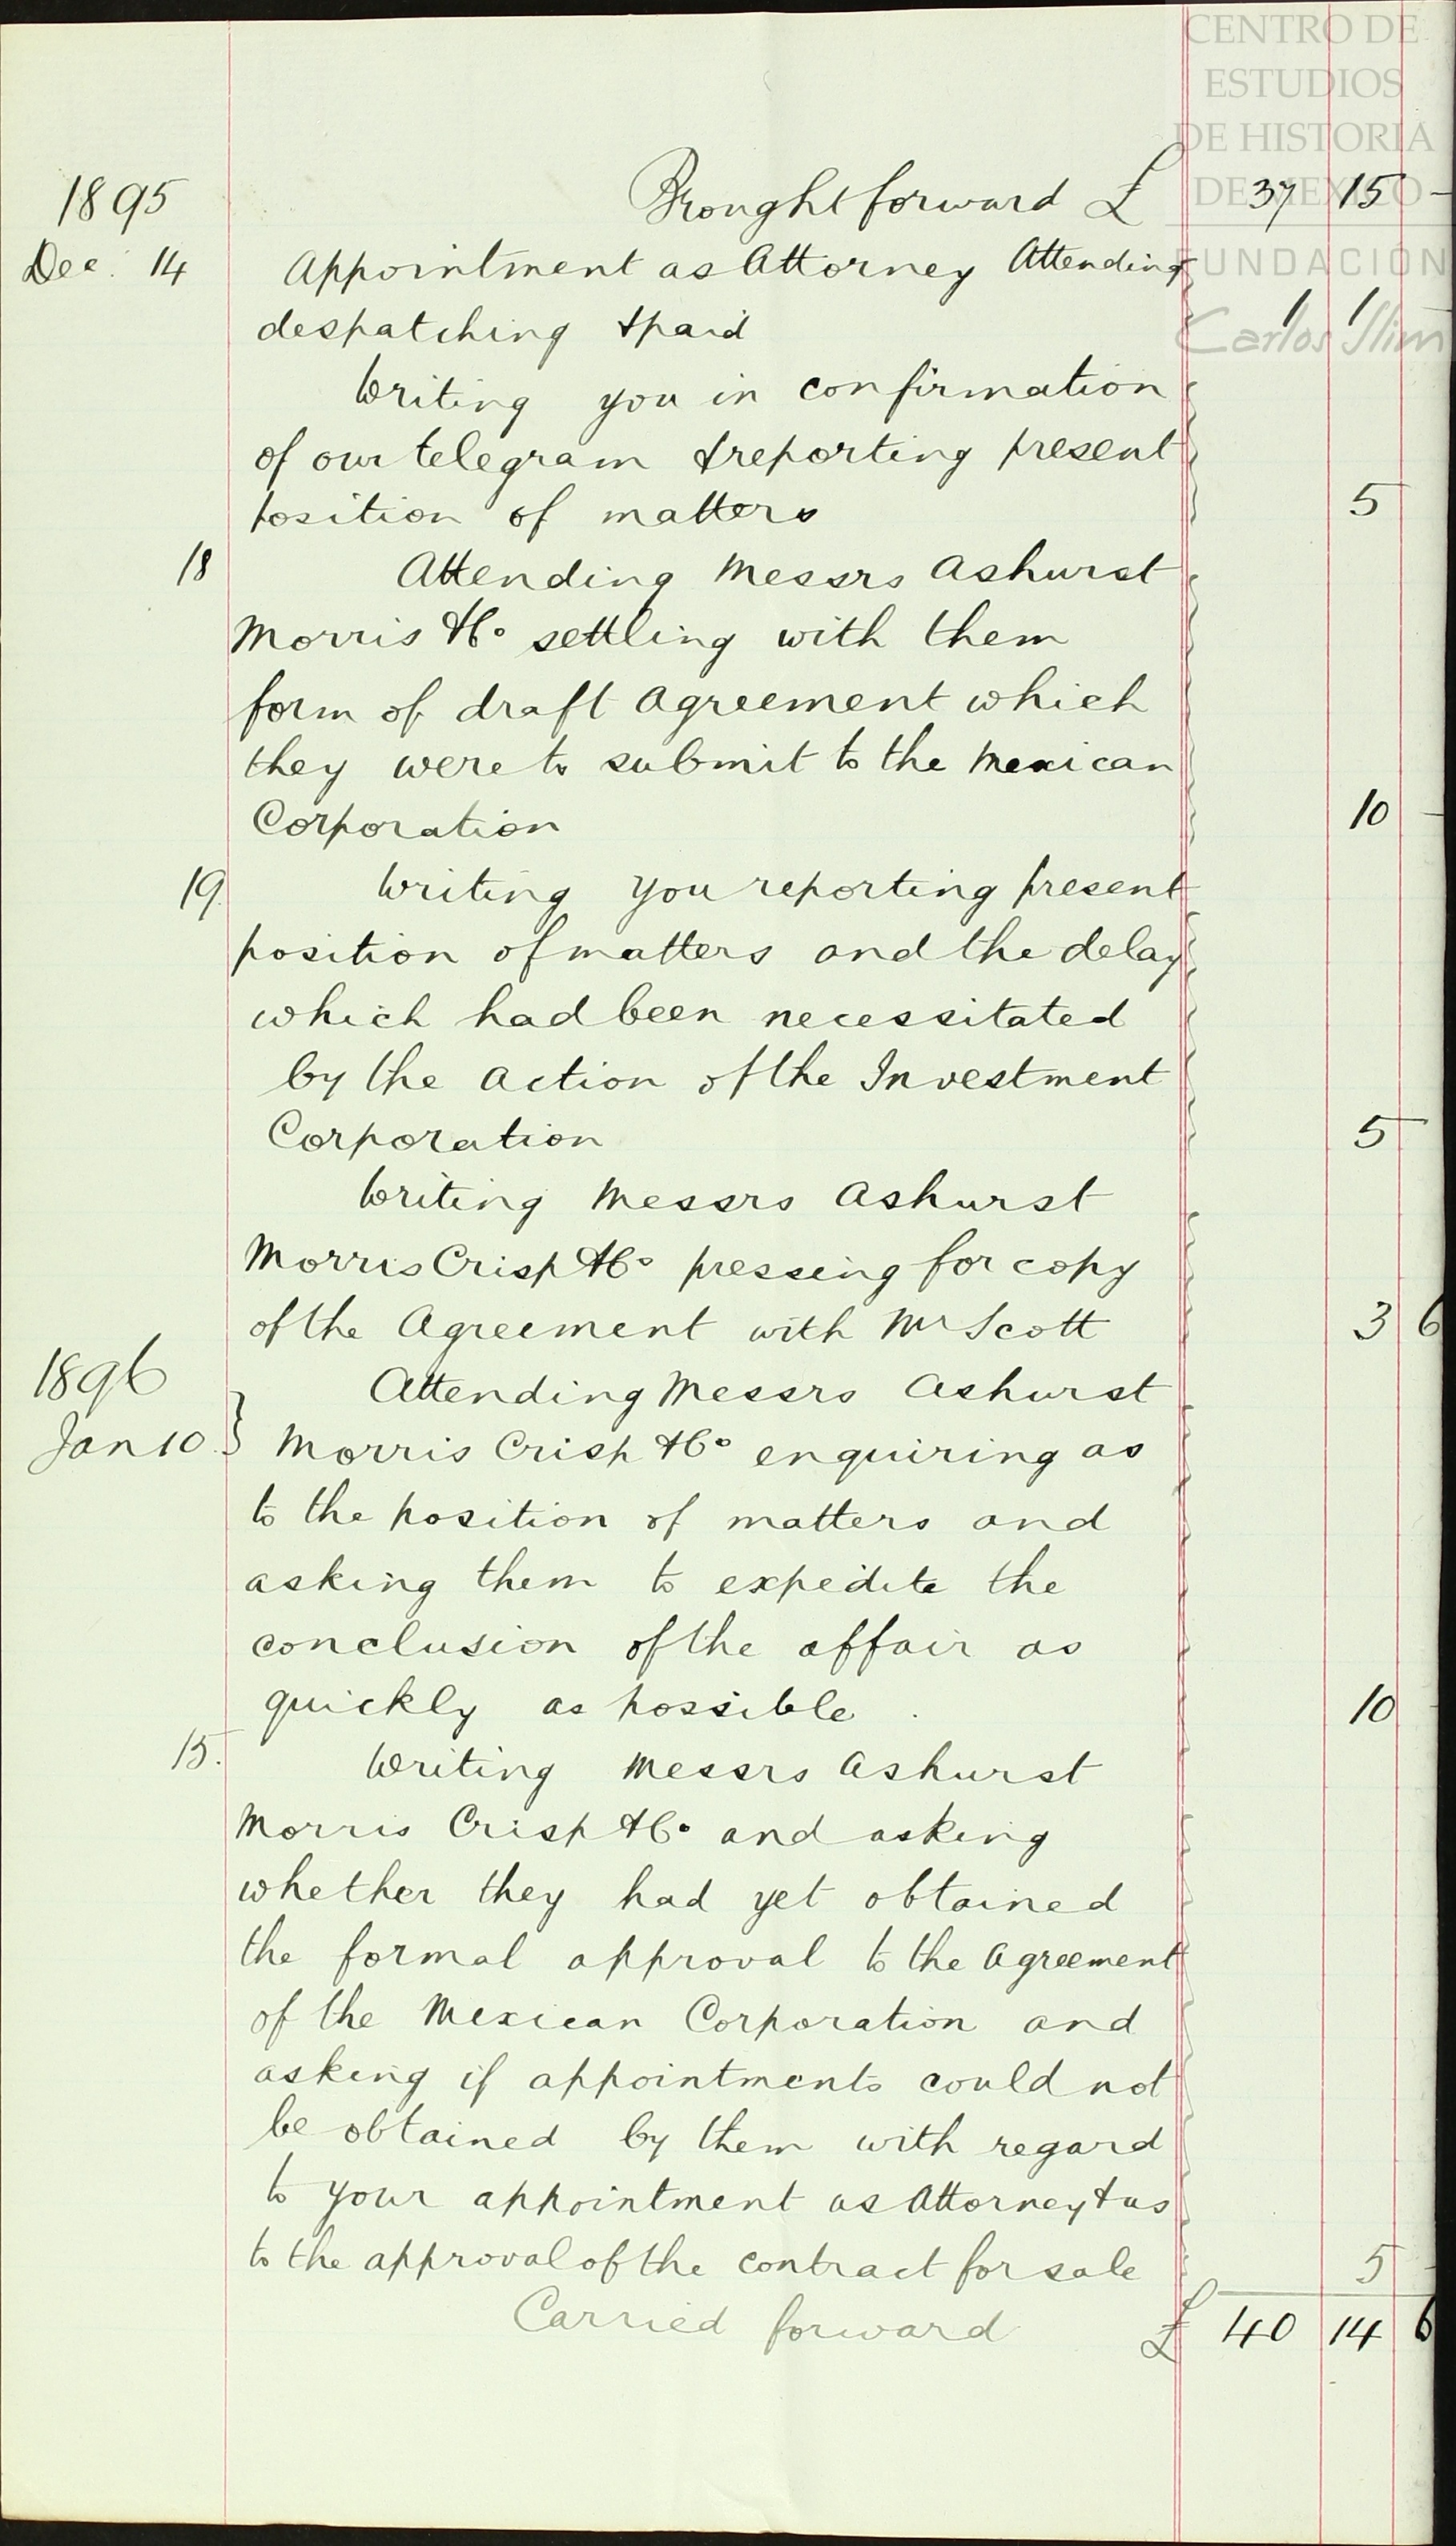 CENTRO DE
ESTUDIOS
DE HISTORIA
DE MEXICO
FUNDACIÓN
Carlos Slim
1895 Brought forward £ 37 15 -
Dec. 14 Appointment as Attorney Attending
despatching & paid 1 1 -
Writing you in confirmation
of our telegram & reporting present
position of matters 5
18 Attending Messrs Ashurst
Morris & Co settling with them
form of draft Agreement which
they were to submit to the Mexican
Corporation 10 -
19. Writing you reporting present
position of matters and the delay
which had been necessitated
by the action of the Investment
Corporation 5
Writing Messrs Ashurst
Morris Crisp & Co pressing for copy
of the Agreement with Mr Scott 3 6
1896 Attending Messrs Ashurst
Jan 10. } Morris Crisp & Co enquiring as
to the position of matters and
asking them to expedite the
conclusion of the affair as
quickly as possible. 10 -
15. Writing Messrs Ashurst
Morris Crisp & Co and asking
whether they had yet obtained
the formal approval to the Agreement
of the Mexican Corporation and
asking if appointments could not
be obtained by them with regard
to your appointment as Attorney & as
to the approval of the contract for sale 5 -
Carried forward £ 40 14 6